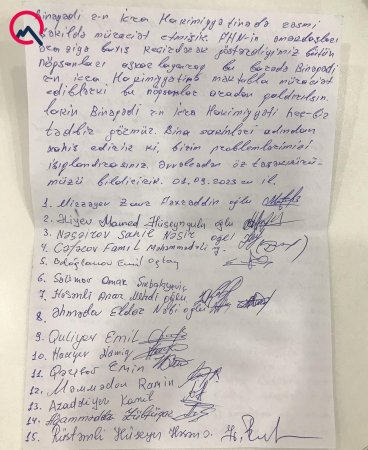 Binəqədi r-n icra Hakimiyyətinədə rəsmi
şəkildə müraciət etmişik. FHN-in əməkdaşları
bizə baxış keçirdərək göstərdiyimiz bütün
nöqsanları aşkarlayaraq bu barədə Binəqədi
r-n icra Hakimiyyətinə məktubla müraciət
ediblərki bu nöqsanlar aradan qaldırılsın.
Lakin Binəqədi r-n icra Hakimiyyəti heç bir
tədbir görmür. Bina sakinləri adından
xahiş edirik ki, bizim problemlərimizi
işıqlandırasınız. Əvvəlcədən öz təşəkkürü-
müzü bildiririk. 01.09.2023-cü il.
1. Mirzəyev Zaur Fəxrəddin oğlu
2. Əliyev Məmməd Hüseynqulu oğlu
3. Nəsirov Sahil Nəsir oğlu
4. Cəfərov Famil Məhəmmədəli o.
5. Emil Oqtay
6. Səlimov Ömər
7. Həsənli Anar Mehdi oğlu
8. Əhmədov Eldar Nəbi oğlu
9. Quliyev Emil
10. Namiq
11. Qəribov Emin
12. Məmmədov Ramin
13. Kamil
14. Məmmədov
15. Rüstəmli Hüseyn